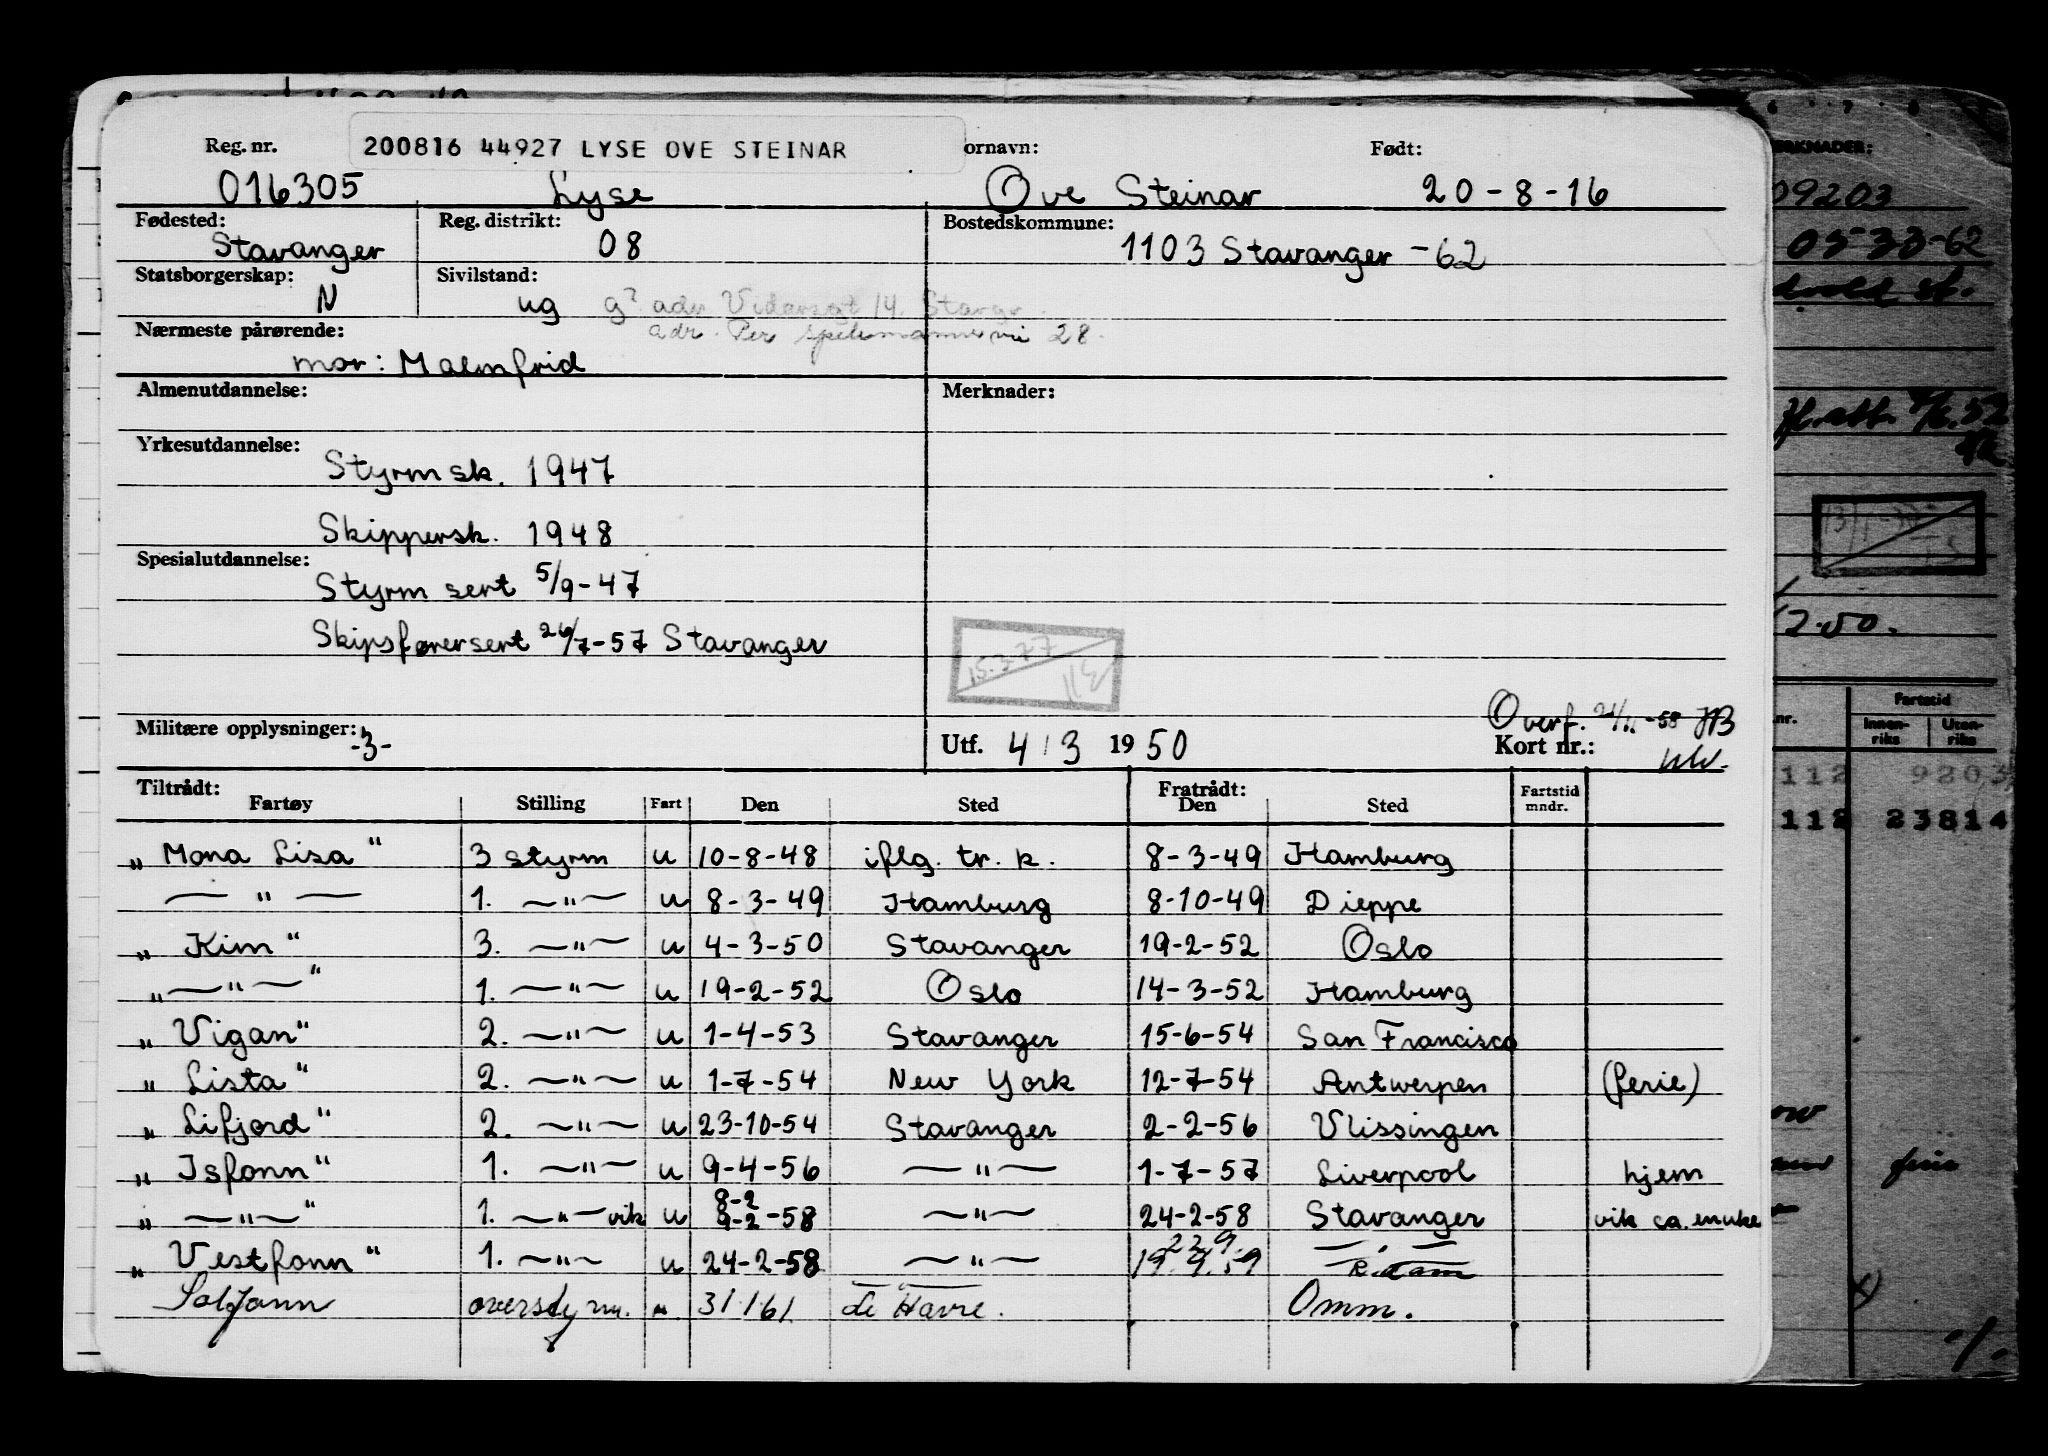 Reg. nr. 200816 44927 LYSE OVE STEINAR ornavn: Født:
016305 Lyse Ove Steinar 20-8-16
Fødested: Reg. distrikt: Bostedskommune:
Stavanger 08 1103 Stavanger -62
Statsborgerskap: Sivilstand:
N ug g? adr. Vidarsgt 14. Stavgr.
Nærmeste pårørende: adr. Per Spelemannsvei 28.
mor: Malmfrid
Almenutdannelse: Merknader:
Yrkesutdannelse:
Styrmsk. 1947
Skippersk. 1948
Spesialutdannelse:
Styrm sert 5/9-47
Skipsførersert 26/7-57 Stavanger
15.3.77
Overf. 21/11-58 HB
Militære opplysninger: -3- Utf. 4/3 1950 Kort nr.:
Tiltrådt: Fratrådt:
Fartøy Stilling Fart Den Sted Den Sted Fartstid mndr.
„Mona Lisa" 3 styrm u 10-8-48 iflg. tr. k. 8-3-49 Hamburg
— " — 1. —"— u 8-3-49 Hamburg 8-10-49 Dieppe
„Kim" 3. —"— u 4-3-50 Stavanger 19-2-52 Oslo
„—"—" 1. —"— u 19-2-52 Oslo 14-3-52 Hamburg
„Vigan" 2. —"— u 1-4-53 Stavanger 15-6-54 San Francisco
„Lista" 2. —"— u 1-7-54 New York 12-7-54 Antwerpen (ferie)
„Lifjord" 2. —"— u 23-10-54 Stavanger 2-2-56 Vlissingen
„Isfonn" 1. —"— u 9-4-56 —"— 1-7-57 Liverpool hjem
„—"—" 1. —"— vik u 8-2 9-2-58 —"— 24-2-58 Stavanger vik ca. en uke
„Vestfonn" 1. —"— u 24-2-58 —"— 19.4.59 R.dam
Solfonn overstyrm. u. 31161 Le Havre. Omm.
ERKNADER:
09203
0533-62
12.50.
nr. Fartstid
Innenriks Utenriks
112 9203
112 23814